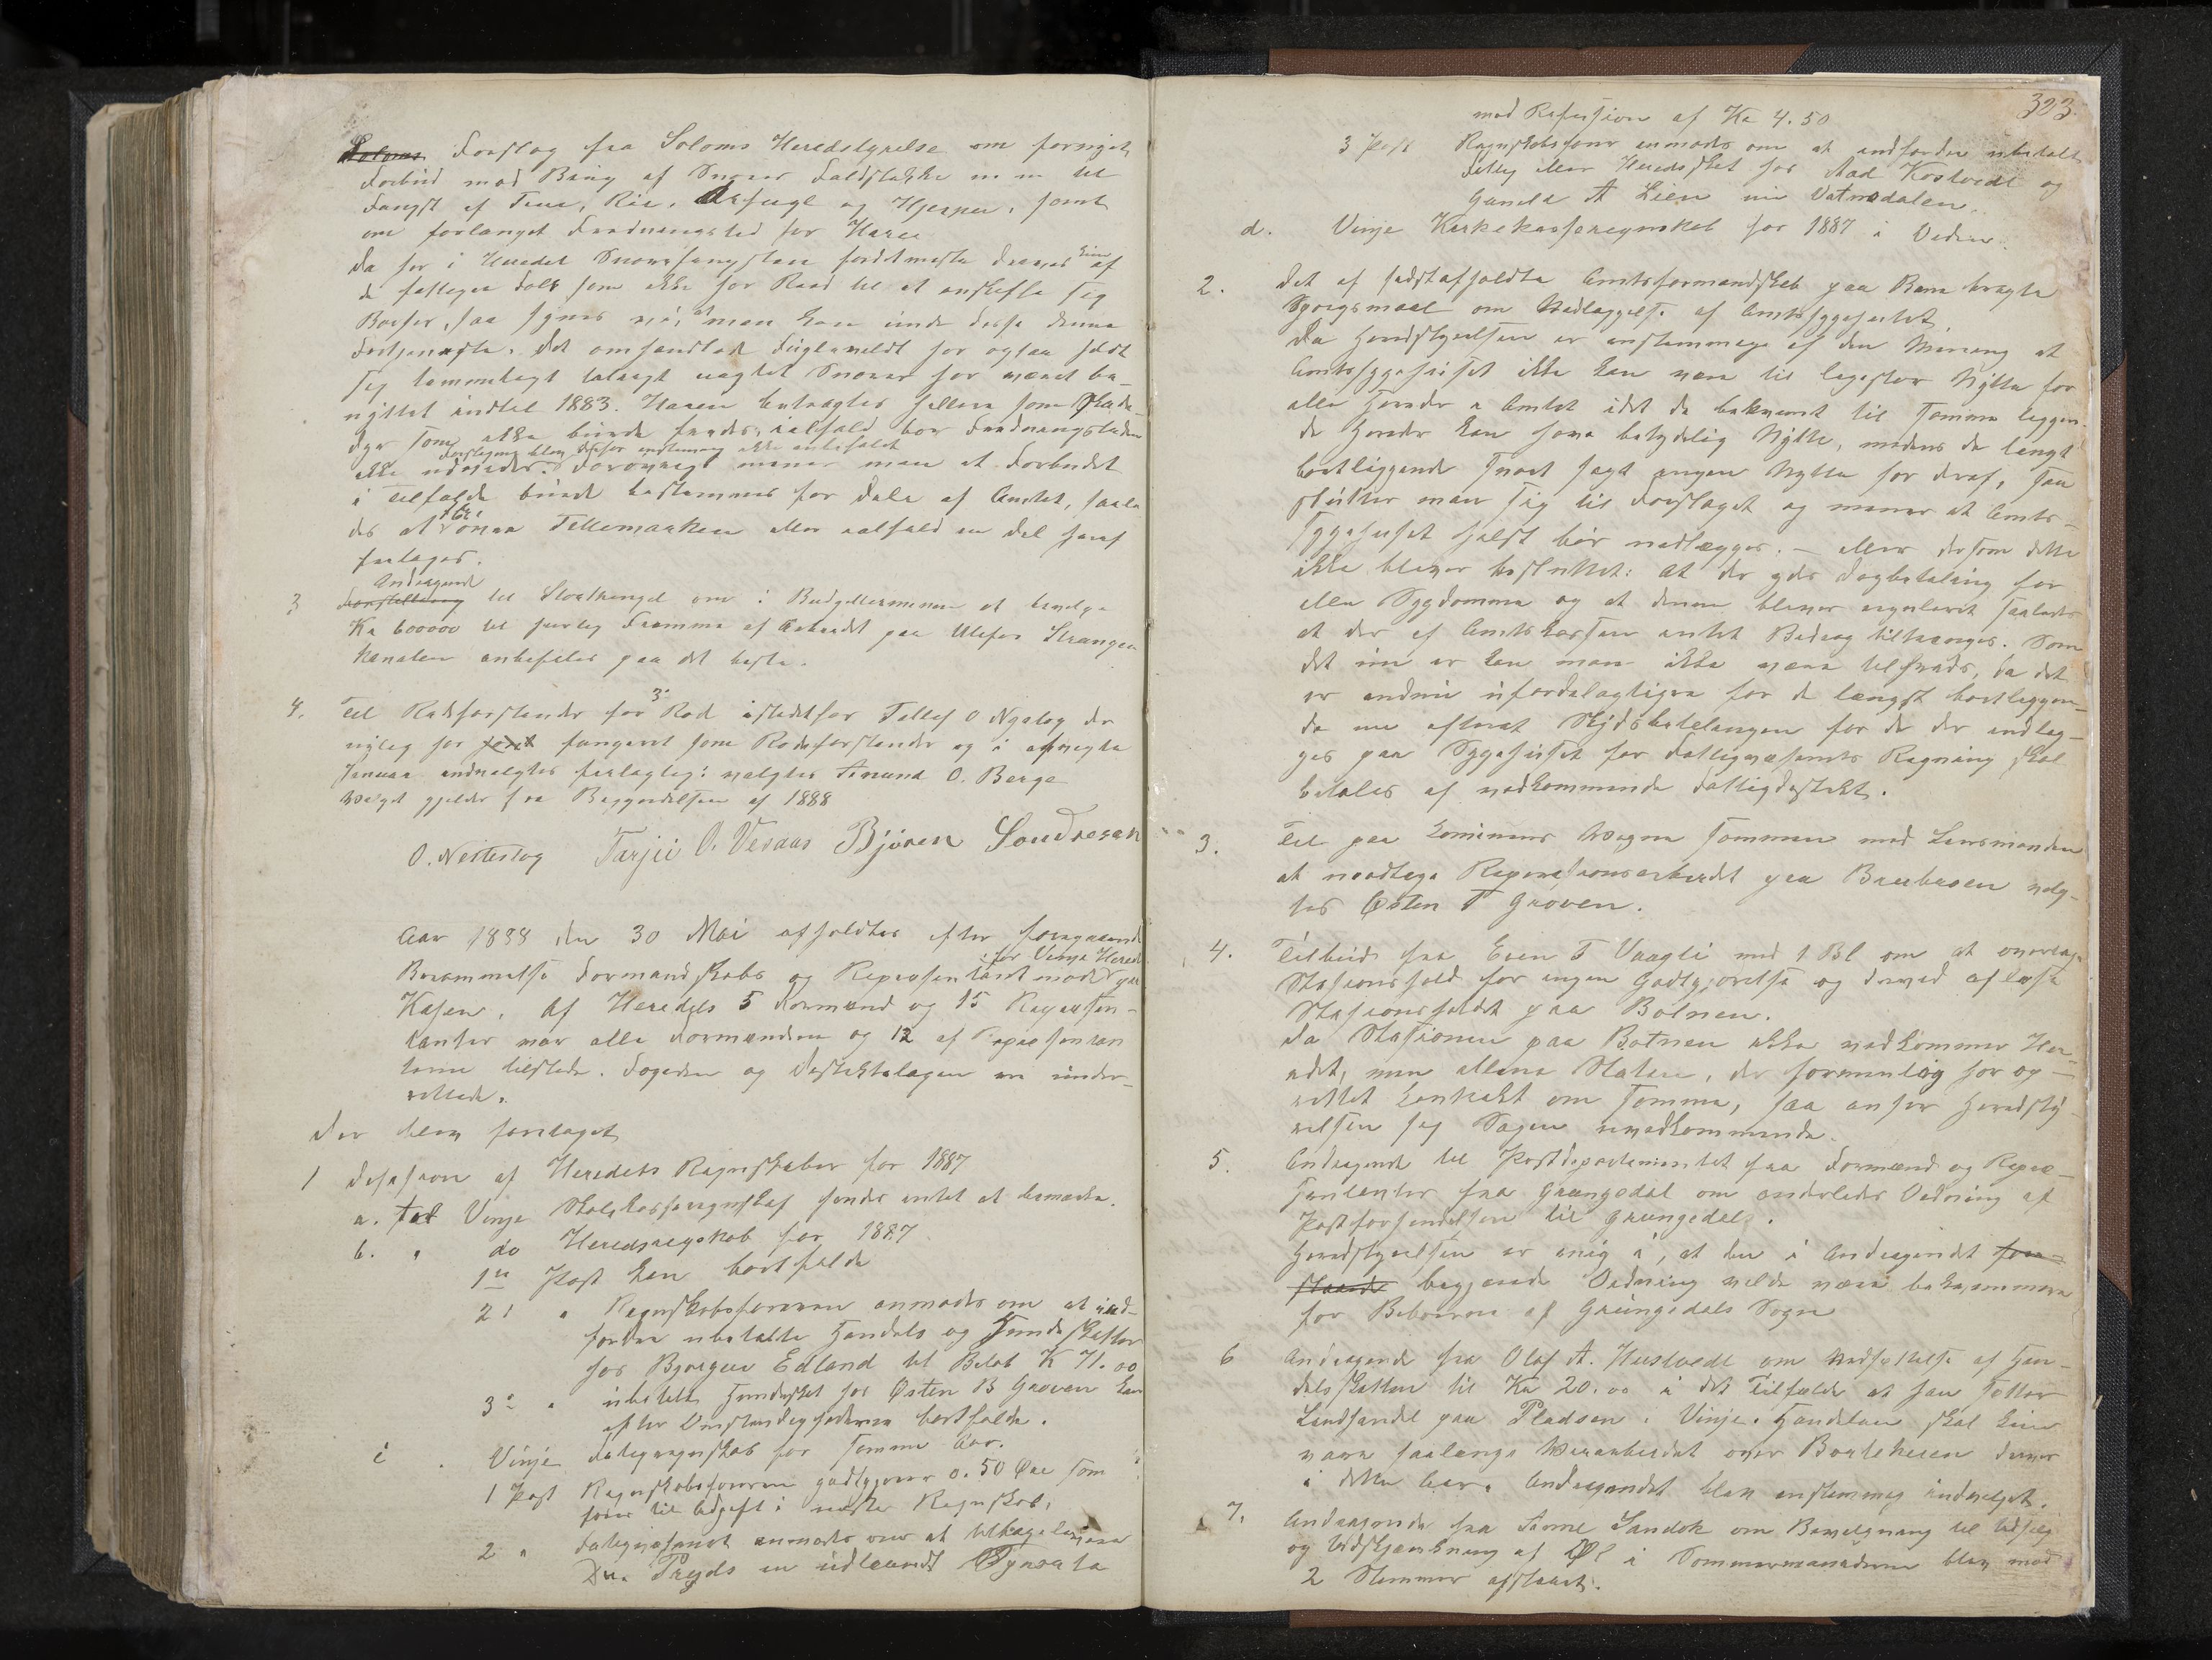 Forslag fra Soloms Heredstyrelse om fornyet
Forbud mod Brug af Snarer Faldstokke m m til
Fangst af Tiur, Rie, Aarfugl og Hjerper, samt
om forlænget Fredningstid for Harer
Da her i Heredet Snarefangsten for det meste drives kun af
de fattiges Folk som ikke har Raad til at anskaffe sig
Børser, saa synes vi, at man kan unde disse denne
Fortjeneste. Det omhandlede Fuglevildt har ogsaa holdt
sig temmeligt talrigt uagtet Snarer har været be-
nyttet indtil 1883. Haren betragtes heller som Skade-
dyr som ikke burde fredes, ialfald bør Fredningstiden
Forslaget blev derfor enstemmig ikke anbefalet
ikke udvides. Forøvrigt mener man at Forbudet
i Tilfælde burde bestemmes for Dele af Amtet, saale
des at øvre Tellemarken eller ialfald en Del heraf
fritages.
Andragende
3 til Storthinget om i Budgetterminen at bevilge
Kr 600000 til hurtig Fremme af Arbeidet paa Ulefos Strængen
Kanalen anbefales paa det beste.
4. Til Rodeforstander for 3die Rode istedetfor Tellef O Nyslog der
nylig har fungeret som Rodeforstander og i afvigte
Januar indvalgtes feilagtig: valgtes Aanund O. Berge
Valget gjelder fra Begyndelsen af 1888
O. Nesteslog Tarjei O. Vesaas Bjøren Sondresen
Aar 1888 den 30 Mai afholdtes efter foregaaende
for Vinje Hered
Berammelse Formandskabs og Repræsentantmøde paa
Kasen. Af Heredets 5 Formænd og 15 Repræsen-
tanter var alle Formændene og 12 af Repræsentan
terne tilstede. Fogden og Distriktslægen var under-
rettede.
Der blev foretaget
1 Desision af Heredets Regnskaber for 1887
a. Vinje Skolekasseregnskab fandtes intet at bemærke.
b. " do Heredsregnskab for 1887
1ste Post kan bortfalde
2 " Regnskabsføreren anmodes om at ind-
fordre ubetalte Handels og Hundeskatter
hos Bjørgu Edland til Beløb K 71.00
3 " ubetalte Hundeskat hos Østen B Groven kan
efter Omstændighederne bortfalde.
c . Vinje Fatigregnskab for samme Aar.
1 Post Regnskabsføreren godtgjører 0.50 Øre som
føres til Udgift i næste Regnskab.
2 " Fatigvæsenet anmodes om at tilbagelevere
323
mod Refusion af Kr 4.50
3 Post Regnskabsfører anmodes om at indfordre ubetalt
Fattig eller Heredsskat hos Aad Kostvedt og
Gunder A Lien nu Vatnedalen.
d. Vinje Kirkekasseregnskab for 1887 i Orden.
2. Det af sidstafholdte Amtsformandskab paa Bane bragte
Spørgsmaal om Nedlæggelse af Amtssygehuset.
Da Heredstyrelsen er enstemmige af den Mening at
Amtssygehuset ikke kan være til ligestor Nytte for
alle Hereder i Amtet idet de bekvemt til samme liggen-
de Hereder kan have betydelig Nytte, medens de længst
bortliggende snart sagt ingen Nytte har deraf, saa
slutter man sig til Forslaget og mener at Amts-
sygehuset helst bør nedlægges. — eller dersom dette
ikke bliver besluttet: at der ydes Dagbetaling for
alle Sygdomme og at denne bliver reguleret saaledes
at der af Amtskassen intet Bidrag tiltrænges. Som
det nu er kan man ikke være tilfreds, da det
er endnu ufordelagtigere for de længst bortliggen-
de nu efterat Skydsbetalingen for de der indlæg-
ges paa Sygehuset for Fattigvæsenets Regning skal
betales af vedkommende Fattigdistrikt.
3. Til paa Kommunens Vegne sammen med Lensmanden
at modtage Reparasionsarbeidet paa Bruebroen valg-
tes Østen T Groven.
4. Tilbud fra Even T Vaagli med 1 Bl om at overtage
Stasionshold for ingen Godtgjørelse og derved afløse
Stasionsholdet paa Botnen.
Da Stasionen paa Botnen ikke vedkommer Her-
edet, men allene Staten, der formentlig har op-
rettet Kontrakt om samme, saa anser Heredsty-
relsen sig Sagen uvedkommende.
5. Andragende til Postdepartementet fra Formænd og Repræ-
sentanter fra Grungedal om anderledes Ordning af
Postforsendelsen til Grungedal.
Heredstyrelsen er enig i, at den i Andragendet
begjærede Ordning vilde være bekvemmere
for Beboerne af Grungedals Sogn
6 Andragende fra Olaf A. Hustvedt om Nedsettelse af Han-
delsskatten til Kr 20.00 i det Tilfælde at han setter
Landhandel paa Pladsen i Vinje. Handelen skal kun
vare saalænge Veiarbeidet over Bortekeren
i dette Aar. Andragendet blev enstemmig indvilget.
7. Andragende fra Aamne Sandok om Bevilgning til Udsalg
og Udskjænkning af Øl i Sommermaanederne blev mod
2 Stemmer afslaaet.